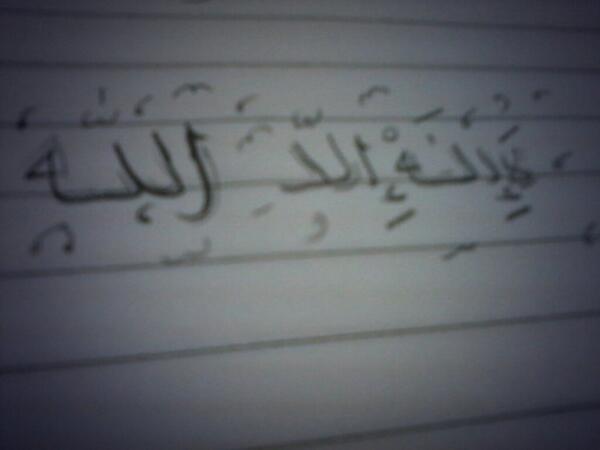 لا إله إلّا الله